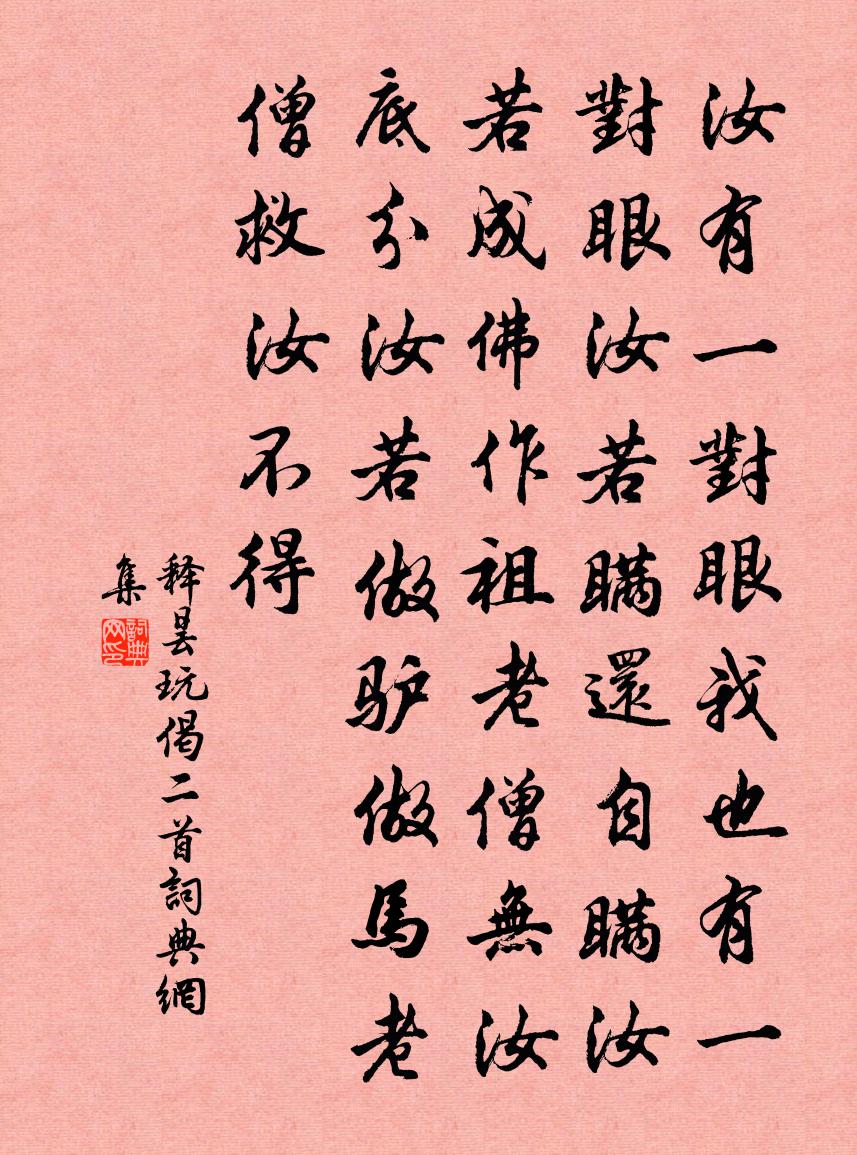 汝有一對眼我也有一
對眼汝若瞞還自瞞汝
若成佛作祖老僧無汝
底分汝若做驴做馬老
僧救汝不得
释昙玩偈二首詞典網
集
詞典
网印